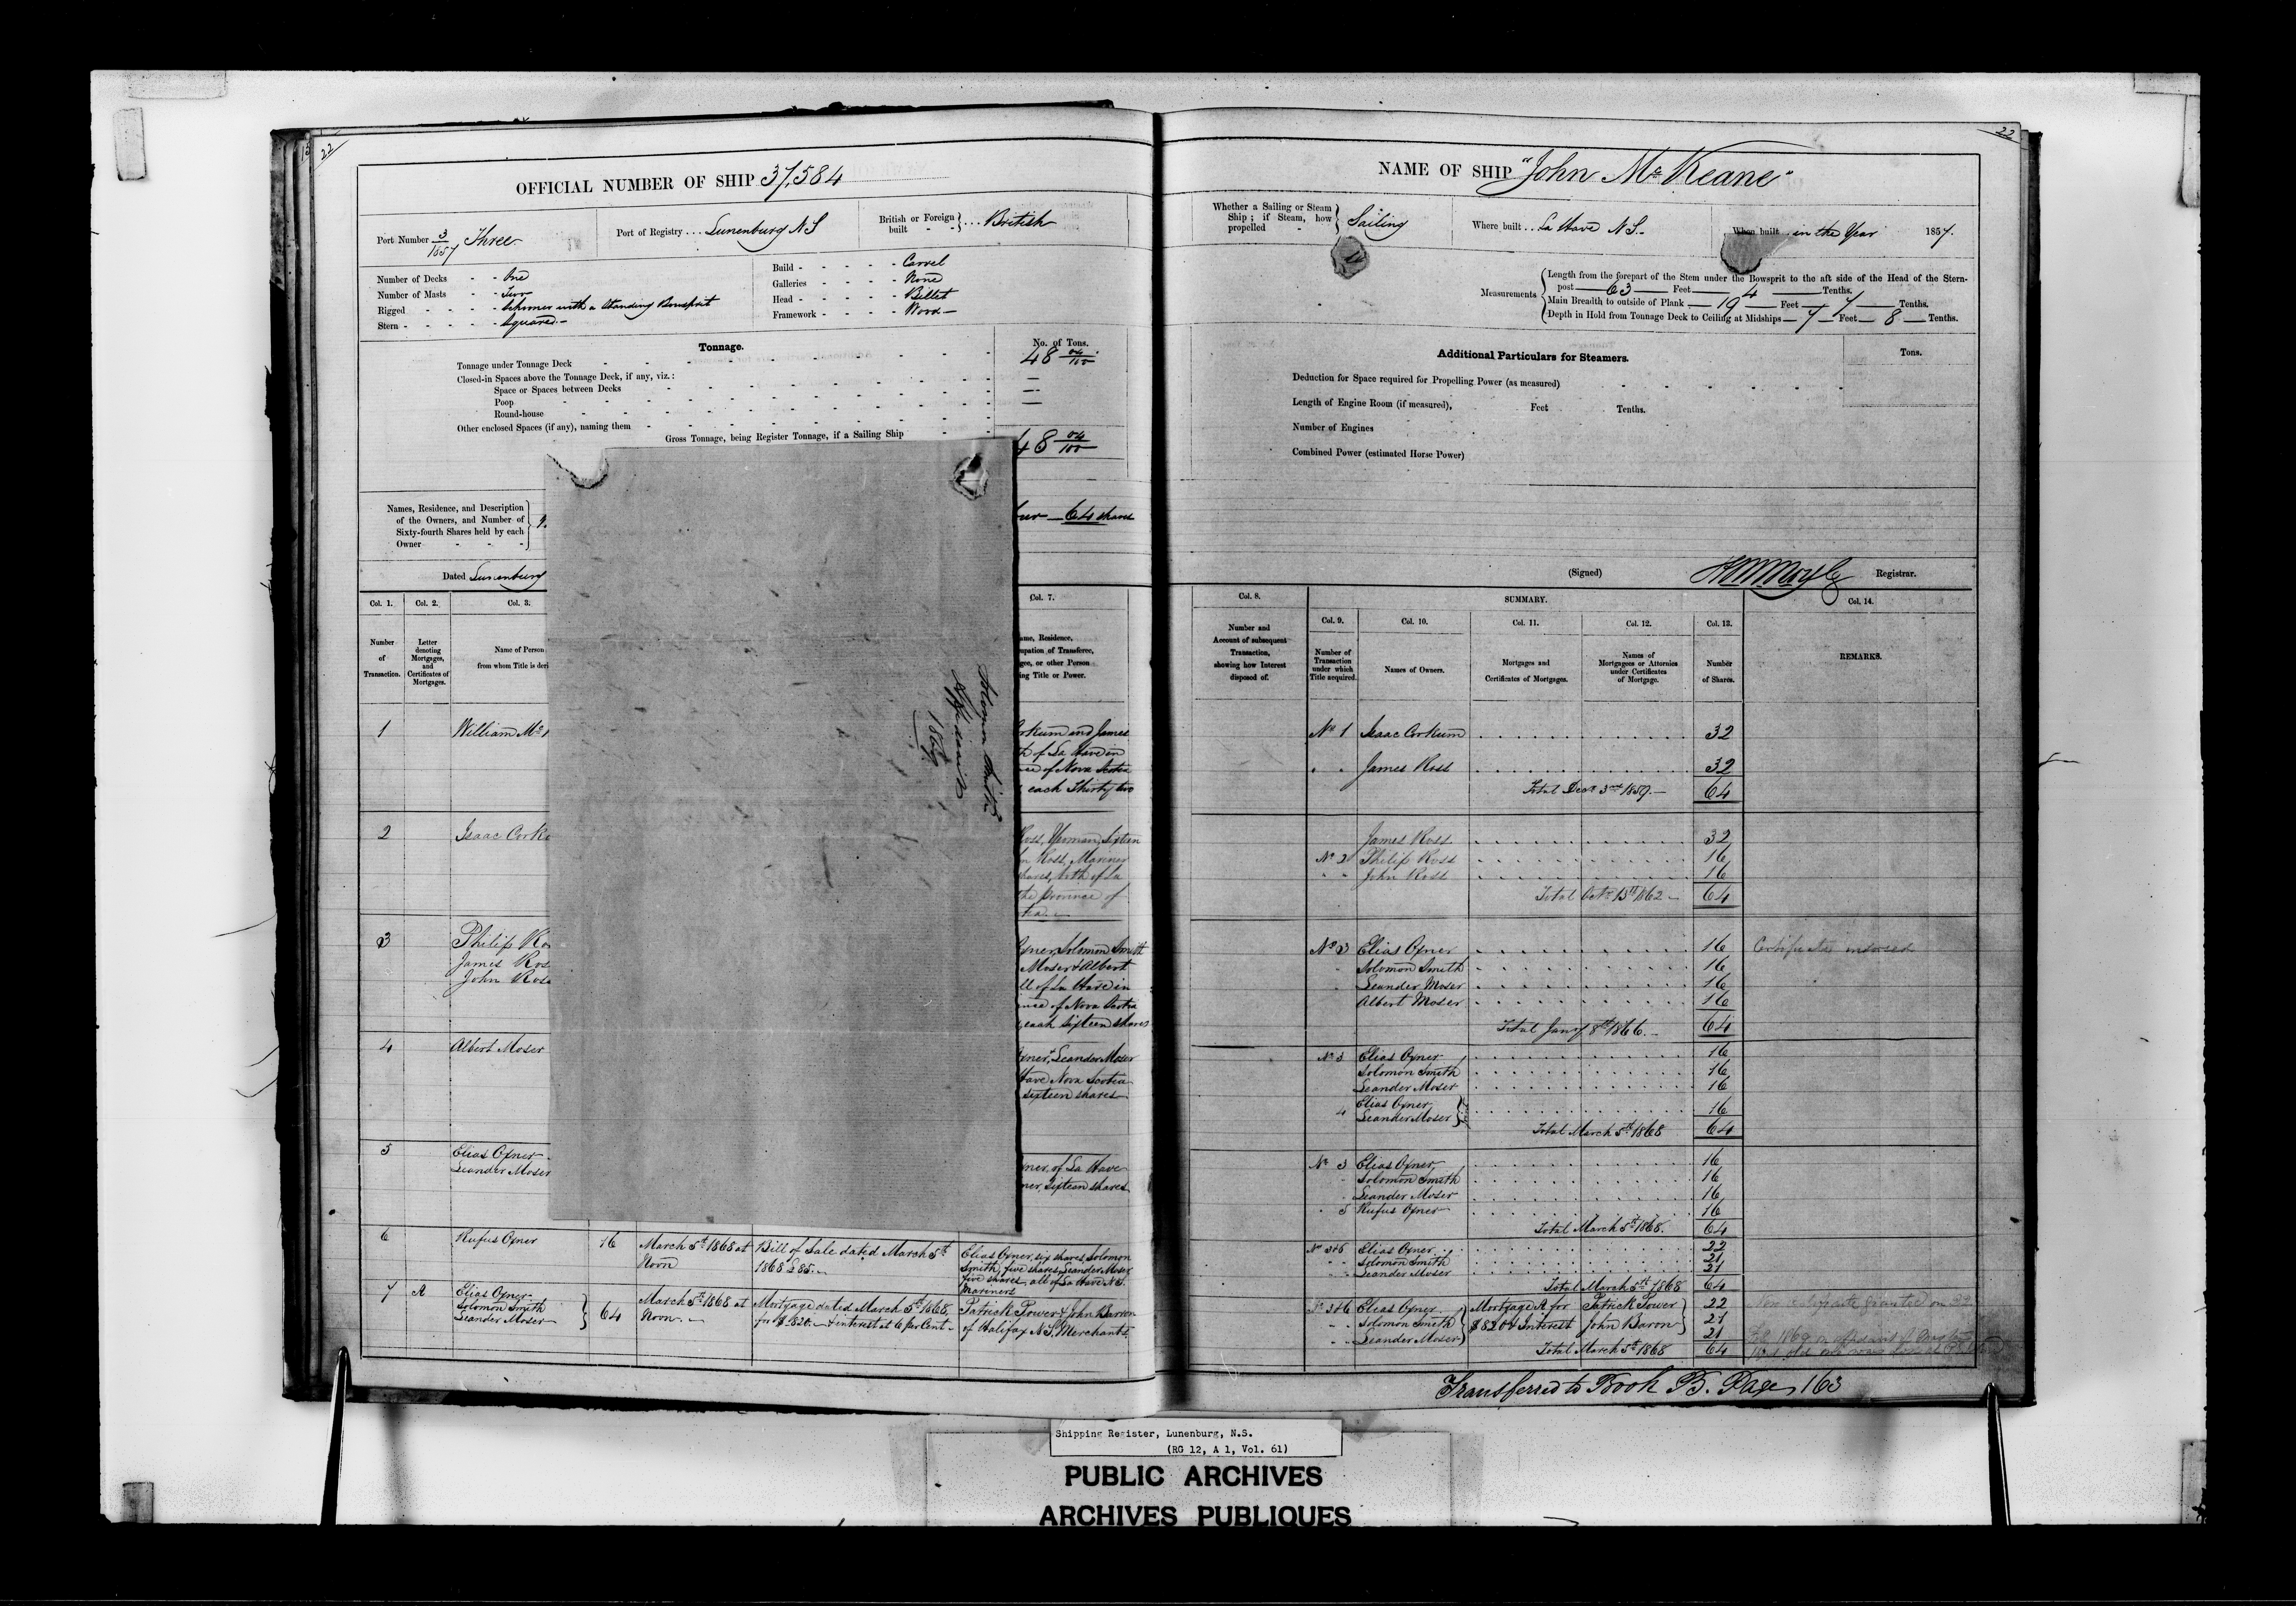 22
OFFICIAL NUMBER OF SHIP 37,584
Port Number 3/1857 Three
Port of Registry ... Lunenburg N S
British or Foreign built - - } ... British
Number of Decks - - One
Number of Masts - - Two
Rigged - - - - Schooner with a Standing Bowsprit
Stern - - - - - Squared
Build - - - - - Carvel
Galleries - - - - None
Head - - - - - Billet
Framework - - - - Wood
Tonnage.
No. of Tons.
Tonnage under Tonnage Deck 48 04/100
Closed-in Spaces above the Tonnage Deck, if any, viz.:
Space or Spaces between Decks —
Poop —
Round-house —
Other enclosed Spaces (if any), naming them
Gross Tonnage, being Register Tonnage, if a Sailing Ship
48 04/100
Names, Residence, and Description
of the Owners, and Number of
Sixty-fourth Shares held by each
Owner - - -
64 shares
Dated Lunenburg
Col. 1.
Col. 2.
Col. 3.
Col. 7.
Number
of
Transaction.
Letter
denoting
Mortgages,
and
Certificates of
Mortgages.
Name of Person
from whom Title is deri
ame, Residence,
upation of Transferee,
gee, or other Person
ing Title or Power.
Solomon Smith
Affidavit
1869
1 William Mc
rkum and James
th of La Have in
nce of Nova Scotia
each Thirty two
2 Isaac Corku
Ross, Yeoman, Sixteen
hn Ross, Mariner
shares, both of La
the province of
otia
3 Philip Ros
James Ros
John Ross
Oxner, Solomon Smith
Moser & Albert
ll of La Have in
ince of Nova Scotia
each sixteen shares
4 Albert Moser
Oxner & Leander Moser
Have Nova Scotia
sixteen shares
5 Elias Oxner
Leander Moser
xner, of La Have
ner, Sixteen shares
6 Rufus Oxner 16 March 5th 1868 at Noon
Bill of Sale dated March 5th 1868 £85.
Elias Oxner, six shares, Solomon
Smith, five shares, Leander Moser
five shares, all of La Have N.S.
Mariners
7 A Elias Oxner
Solomon Smith
Leander Moser } 64 March 5th 1868 at Noon
Mortgage dated March 5th 1868,
for $820. & interest at 6 per Cent
Patrick Power & John Barron
of Halifax N.S. Merchants.
22
NAME OF SHIP "John McKeane"
Whether a Sailing or Steam
Ship; if Steam, how
propelled - } Sailing
Where built .. La Have N S.
When built .. in the Year 1857.
Measurements
Length from the forepart of the Stem under the Bowsprit to the aft side of the Head of the Stern-
post — 63 — Feet 4 — Tenths.
Main Breadth to outside of Plank — 19 — Feet — 7 — Tenths.
Depth in Hold from Tonnage Deck to Ceiling at Midships — 7 — Feet — 8 — Tenths.
Additional Particulars for Steamers.
Tons.
Deduction for Space required for Propelling Power (as measured)
Length of Engine Room (if measured), Feet Tenths.
Number of Engines
Combined Power (estimated Horse Power)
(Signed) Registrar.
Col. 8.
SUMMARY.
Col. 9.
Col. 10.
Col. 11.
Col. 12.
Col. 13.
Col. 14.
Number and
Account of subsequent
Transaction,
showing how Interest
disposed of.
Number of
Transaction
under which
Title acquired.
Names of Owners.
Mortgages and
Certificates of Mortgages.
Names of
Mortgagees or Attornies
under Certificates
of Mortgage.
Number
of Shares.
REMARKS.
No 1 Isaac Corkum 32
" " James Ross 32
Total Decr 3rd 1859. 64
James Ross 32
No 2 Philip Ross 16
" " John Ross 16
Total Octr 13th 1862 64
No 3 Elias Oxner 16 Certificate indorsed
Solomon Smith 16
Leander Moser 16
Albert Moser 16
Total Jany 8th 1866. 64
No 3 Elias Oxner 16
Solomon Smith 16
Leander Moser 16
4 Elias Oxner
Leander Moser } 16
Total March 5th 1868 64
No 3 Elias Oxner 16
Solomon Smith 16
Leander Moser 16
5 Rufus Oxner 16
Total March 5th 1868. 64
No 3&6 Elias Oxner 22
" " Solomon Smith 21
" " Leander Moser 21
Total March 5th 1868 64
No 3&6 Elias Oxner
Solomon Smith
Leander Moser }
Mortgage A for
$820 & Interest
Patrick Power
John Baron }
22
21
21
Total March 5th 1868 64
Transferred to Book B. Page 163
Shipping Register, Lunenburg, N.S.
(RG 12, A 1, Vol. 61)
PUBLIC ARCHIVES
ARCHIVES PUBLIQUES